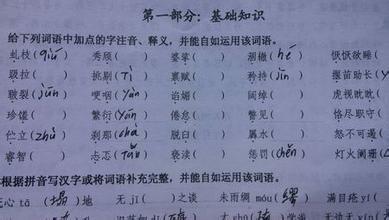 第一部分：基础知识
给下列词语中加点的字注音、释义，并能自如运用该词语。
虬枝(qiú) 秀颀( 婆挲( 涸辙(hé) 恹恹欲睡(
跋拉( 挑剔(Tì 禀赋( 矜持(jīn) 揠苗助长(
皲裂(jūn) 哽咽(yàn) 谄媚( 阔绰( 虎视眈眈(
珍馐( 繁衍(yǎn 倦怠( 瞥见( 恪尽职守(
伫立(zhù) 刹那(chà 脱臼( 羼水( 怒不可遏(
睿智( 忐忑(tǎn 亵渎( 惩罚(chěn) 灯火阑珊(
根据拼音写汉字或将词语补充完整，并能自如运用该词语。
心tā(塌)地 无jī( )之谈 未雨绸móu(缪) 满目疮yí(